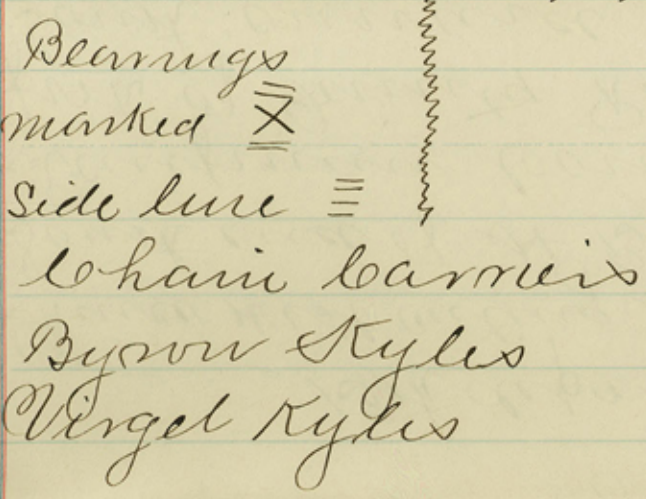 Bearings
marked X
Side line
Chain Carriers
Byron Kyles
Virgel Kyles